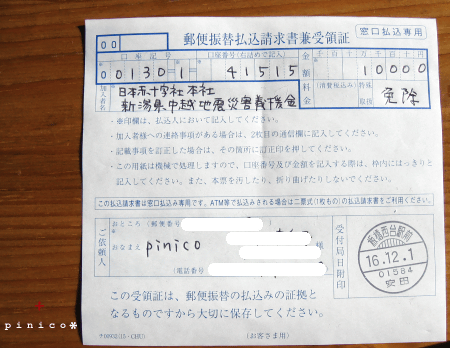 00
郵便振替払込請求書兼受領証
窓口払込専用
口座記号
口座番号(右詰めで記入)
00130=1= 41515
金額
千百十万千百十円
10000
加入者名
日本赤十字社 本社
新潟県中越地震災害義援金
料金
(消費税込み)
特殊取扱
免除
・※印欄は、払込人において記入してください。
・加入者様への連絡事項がある場合は、2枚目の通信欄に記入してください。
・記載事項を訂正した場合は、その箇所に訂正印を押してください。
・この用紙は機械で処理しますので、口座番号及び金額を記入する際は、枠内にはっきりと
記入してください。また、本票を汚したり、折り曲げたりしないでください。
この払込請求書は窓口払込み専用です。ATM等で払込みされる場合は二票式(1枚もの)の払込請求書をご利用ください。
ご依頼人
おところ(郵便番号
おなまえ
pinico
様
(電話番号
受付局日附印
16.12.1
01564
安田
この受領証は、郵便振替の払込みの証拠と
なるものですから大切に保存してください。
(お客さま用)
pinico*